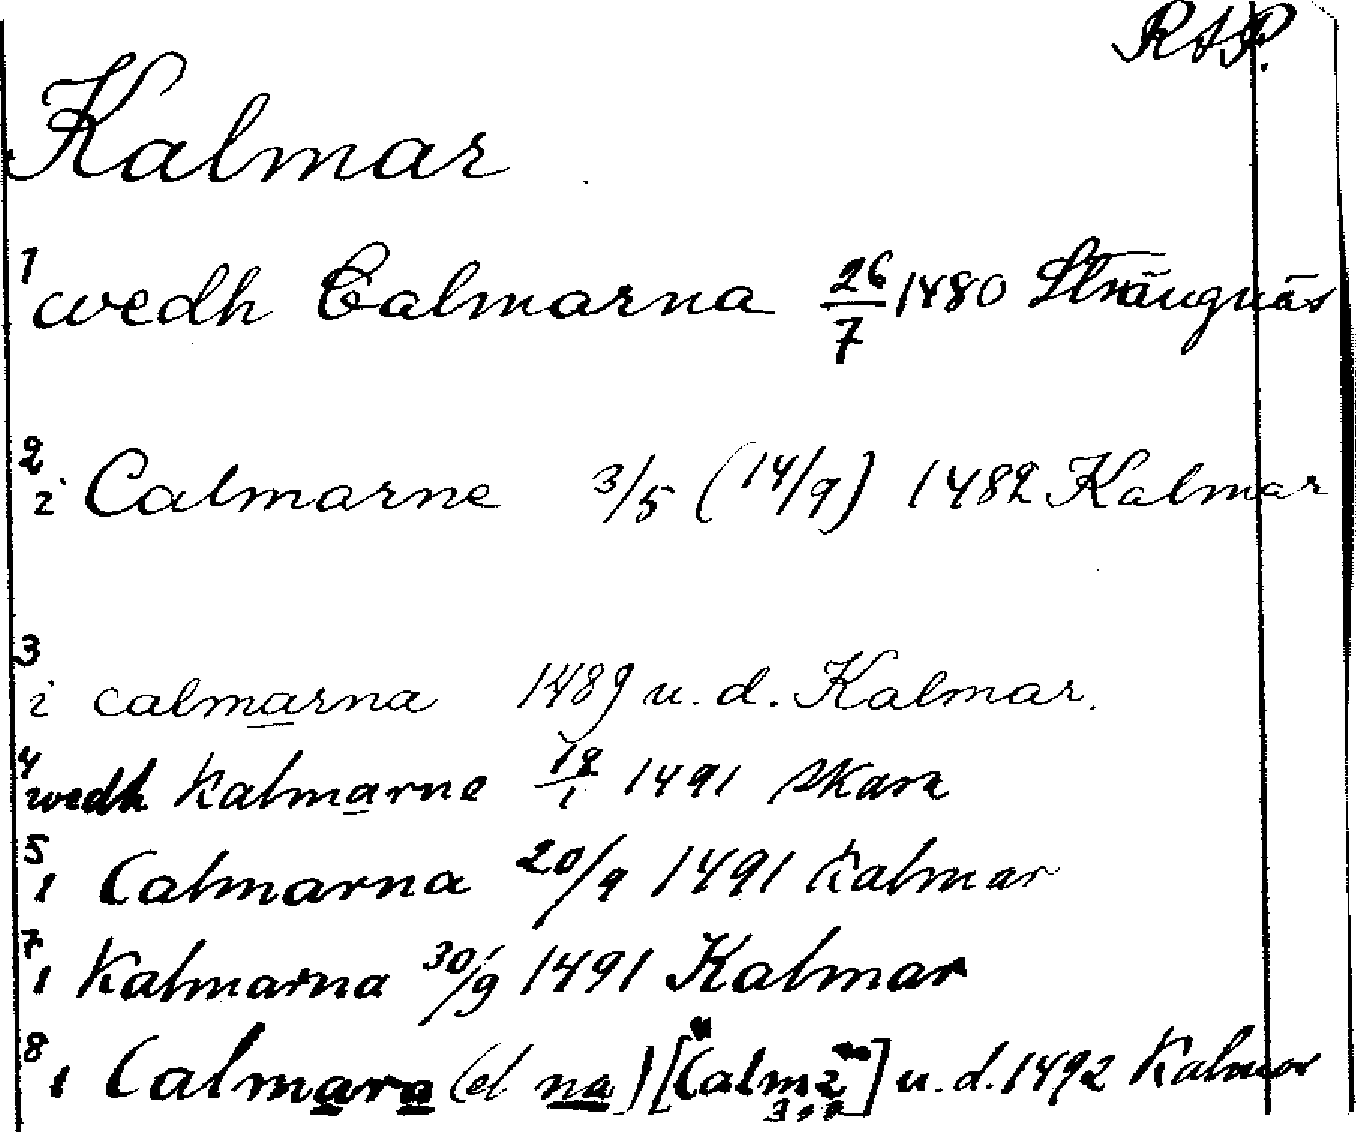 RAP.
Kalmar
1 wedh Calmarna 26/7 1480 Strängnäs
2 i Calmarne 3/5 (14/9) 1482 Kalmar
3 i calmarna 1489 u. d. Kalmar.
4 wedh Kalmarne 18/1 1491 Skara
5 i Calmarna 20/9 1491 Kalmar
7 i Kalmarna 30/9 1491 Kalmar
8 i Calmara (el na) [Calm] u. d. 1492 Kalmar